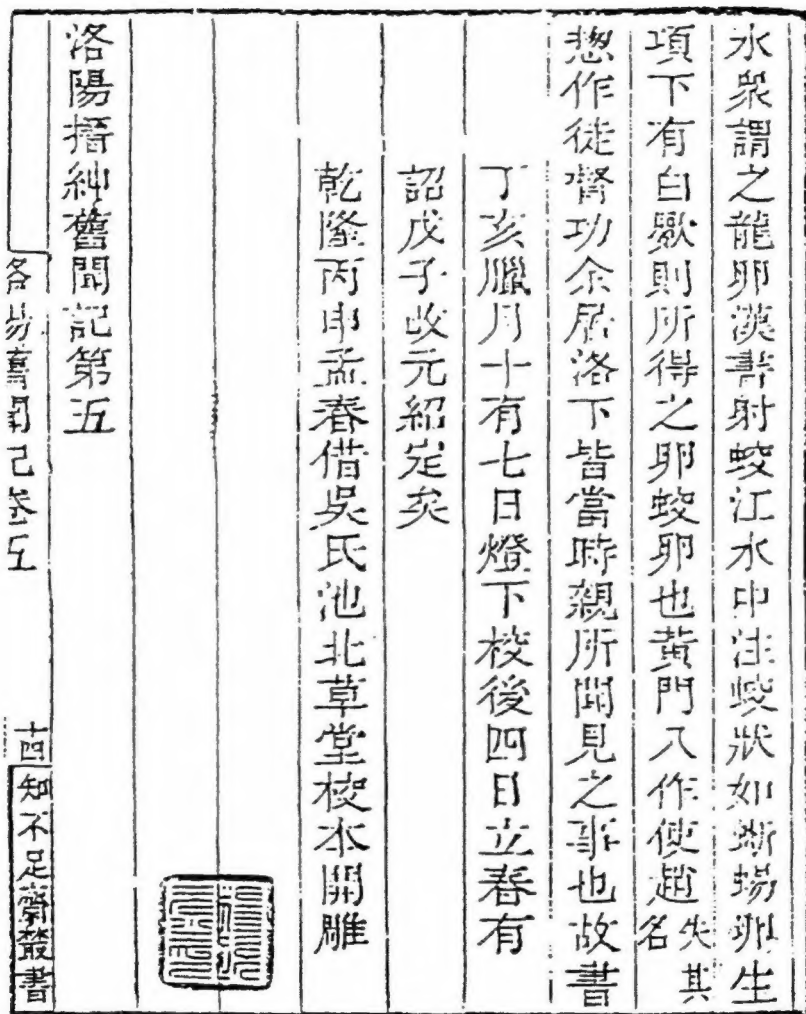 水衆謂之龍卵漢書射蛟江水中注蛟狀如蜥蜴卵生
項下有白嬰則所得之卵蛟卵也黃門八作使趙失其名
愬作徒督功余居洛下皆當時親所聞見之事也故書
丁亥臘月十有七日燈下校後四日立春有
詔戊子改元紹定矣
乾隆丙申孟春借吳氏池北草堂校本開雕
洛陽搢紳舊聞記第五
洛陽舊聞記卷五
十四
知不足齋叢書